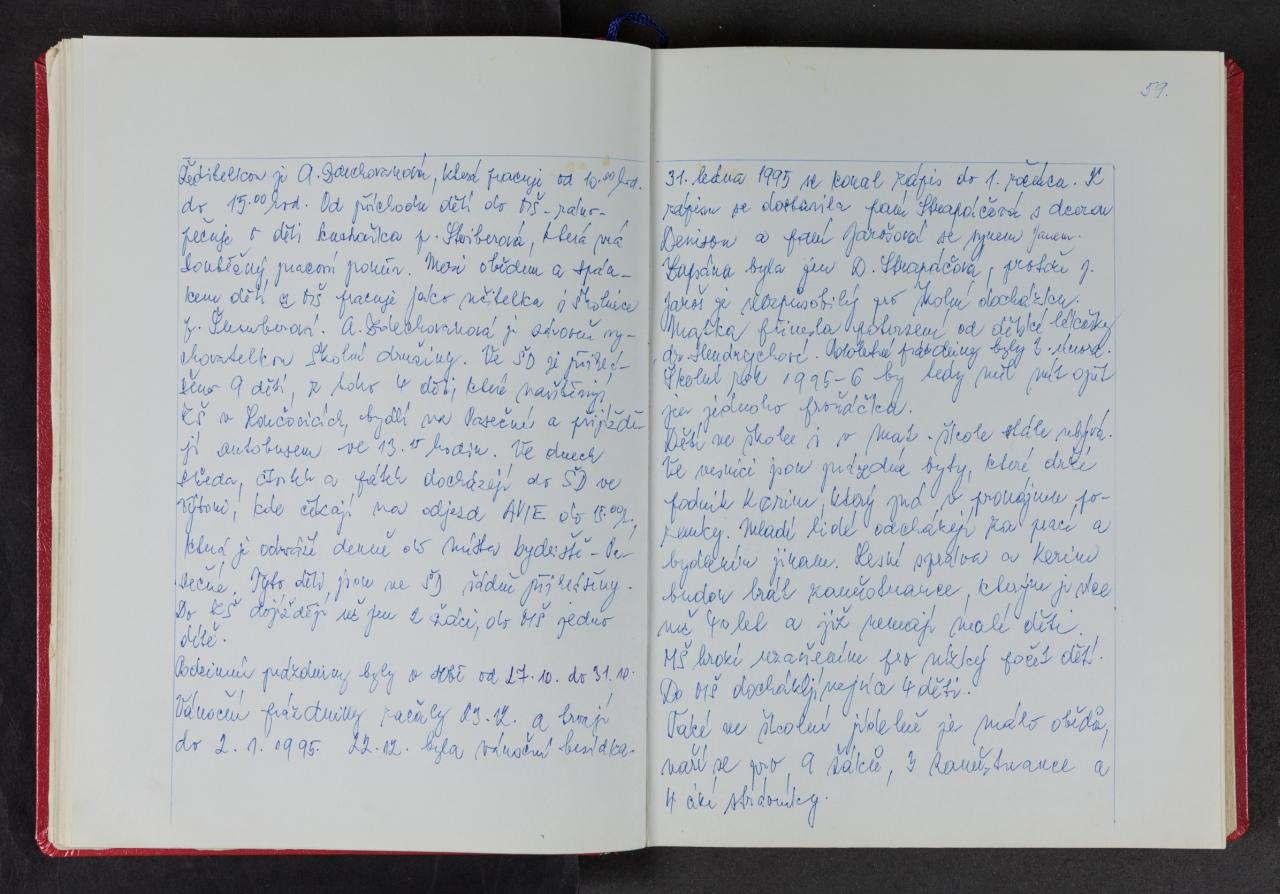 Ředitelkou je A. Zdechovanová, která pracuje od 10.00 hod.
do 15.00 hod. Od příchodu dětí do MŠ - ráno -
pečuje o děti kuchařka p. Stoiberová, která má
souběžný pracovní poměr. Mezi obědem a spán-
kem dětí z MŠ pracuje jako učitelka i školnice
p. A. Zdechovanová je zároveň vy-
chovatelkou školní družiny. Ve ŠD je přihlá-
šeno 9 dětí, z toho 4 děti, které navštěvují
ZŠ v bydlí na Pasečné a přijíždě-
jí autobusem ve 13.15 hodin. Ve dnech
středa, čtvrtek a pátek docházejí do ŠD ve
Výtoni, kde čekají na odjezd AVIE do 15.00 h,
která je odváží denně do místa bydliště - Pa-
sečná. Tyto děti jsou ve ŠD řádně přihlášeny.
Do ZŠ dojíždějí už jen 2 žáci, do MŠ jedno
dítě.
Podzimní prázdniny byly v době od 27.10. do 31.10.
Vánoční prázdniny začaly 23.12. a trvají
do 2.1.1995. 22.12. byla vánoční besídka.
59.
31. ledna 1995 se konal zápis do 1. ročníku. K
zápisu se dostavila paní Strapáčová s dcerou
Denisou a paní Jarošová se synem Janem.
Zapsána byla jen D. Strapáčová, protože J.
Jaroš je nezpůsobilý pro školní docházku.
Matka přinesla potvrzení od dětské lékařky
dr. Hendrychové. Pololetní prázdniny byly 2. února.
Školní rok 1995-6 by tedy měl mít opět
jen jednoho prvňáčka.
Dětí ve škole i v mat. škole stále ubývá.
Ve vesnici jsou prázdné byty, které drží
podnik Kerim, který má v pronájmu po-
zemky. Mladí lidé odcházejí za prací a
bydlením jinam. Lesní správa a Kerim
budou brát zaměstnance, kterým je více
než 40 let a již nemají malé děti.
MŠ hrozí uzavřením pro nízký počet dětí.
Do MŠ docházejí nejvíce 4 děti.
Také ve školní jídelně je málo obědů,
vaří se pro 9 žáků, 3 zaměstnance a
4 cizí strávníky.